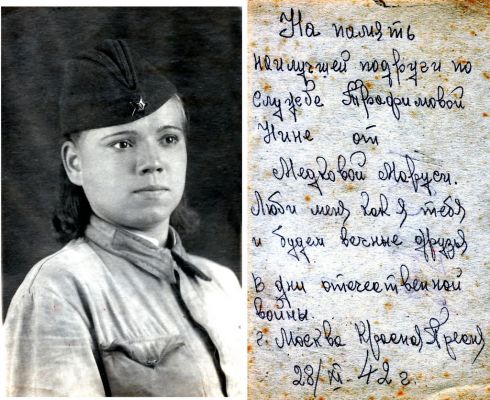 На память
наилучшей подруги по
службе Трофимовой
Нине от
Медковой Маруси.
Люби меня как я тебя
и будем вечные друзья
в дни отечественной
войны.
г. Москва Красная Пресня
28/XI 42 г.